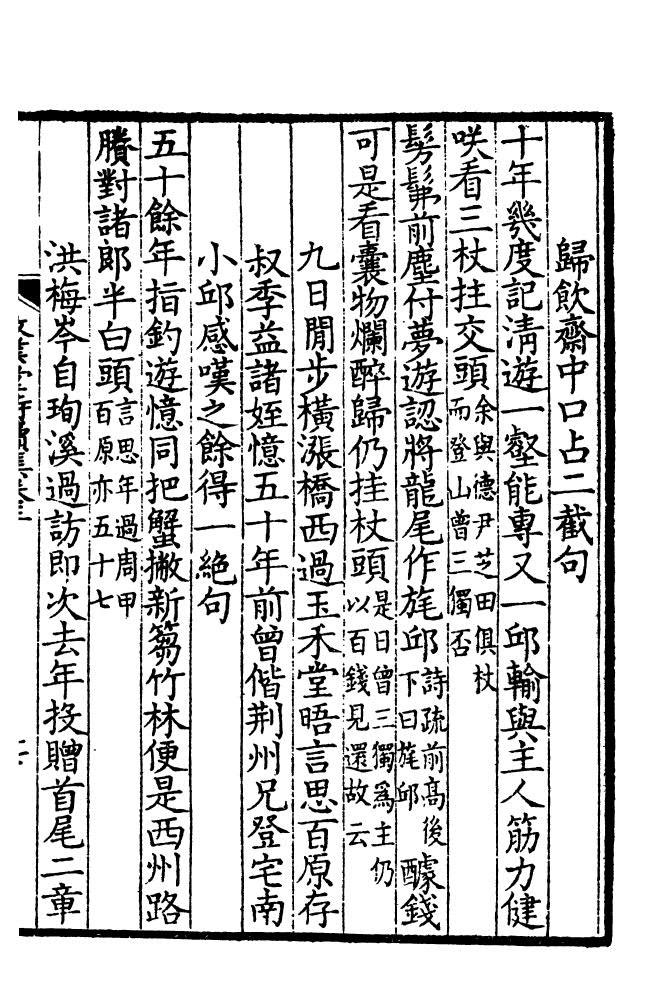 歸飲齋中口占二截句
十年幾度記淸遊一壑能專又一邱輸與主人筋力健
咲看三杖拄交頭余與德尹芝田俱杖而登山曾三獨否
髣髴前塵付夢遊認將龍尾作旄邱詩疏前高後下曰旄邱醵錢
可是看囊物爛醉歸仍挂杖頭是日曾三獨爲主仍以百錢見還故云
九日閒步橫漲橋西過玉禾堂晤言思百原存
叔季益諸姪憶五十年前曾偕荆州兄登宅南
小邱感嘆之餘得一絶句
五十餘年指釣遊憶同把蟹撇新篘竹林便是西州路
賸對諸郞半白頭言思年過周甲百原亦五十七
洪梅岑自珣溪過訪卽次去年投贈首尾二章